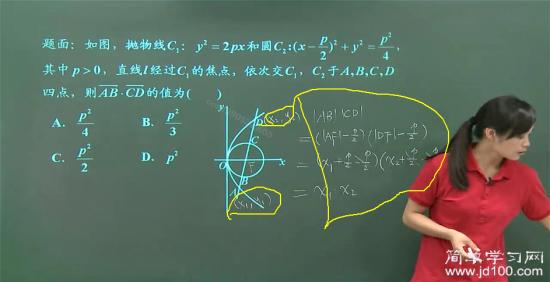 题面：如图，抛物线C₁：y² = 2px和圆C₂:(x − p/2)² + y² = p²/4，
其中 p > 0，直线l经过C₁的焦点，依次交C₁，C₂于A,B,C,D
四点，则AB·CD的值为( )
A. p²/4 B. p²/3
C. p²/2 D. p²
y
D (x₂, y₂)
C
O F x
B
A
(x₁, y₁)
|AB| |CD|
= (|AF| − p/2)(|DF| − p/2)
= (x₁ + p/2 − p/2)(x₂ + p/2 − p/2)
= x₁ x₂
简单学习网
www.jd100.com